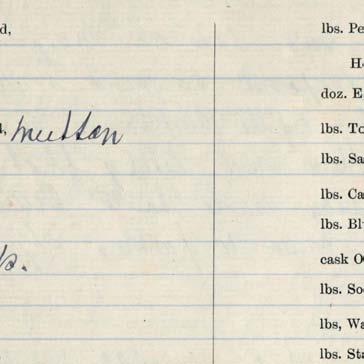 d,
lbs. Pe
H
doz. E
d, mutton
lbs. To
lbs. Sa
lbs. Ca
lbs. Bl
s.
cask O
lbs. So
lbs, Wa
lbs. Sta